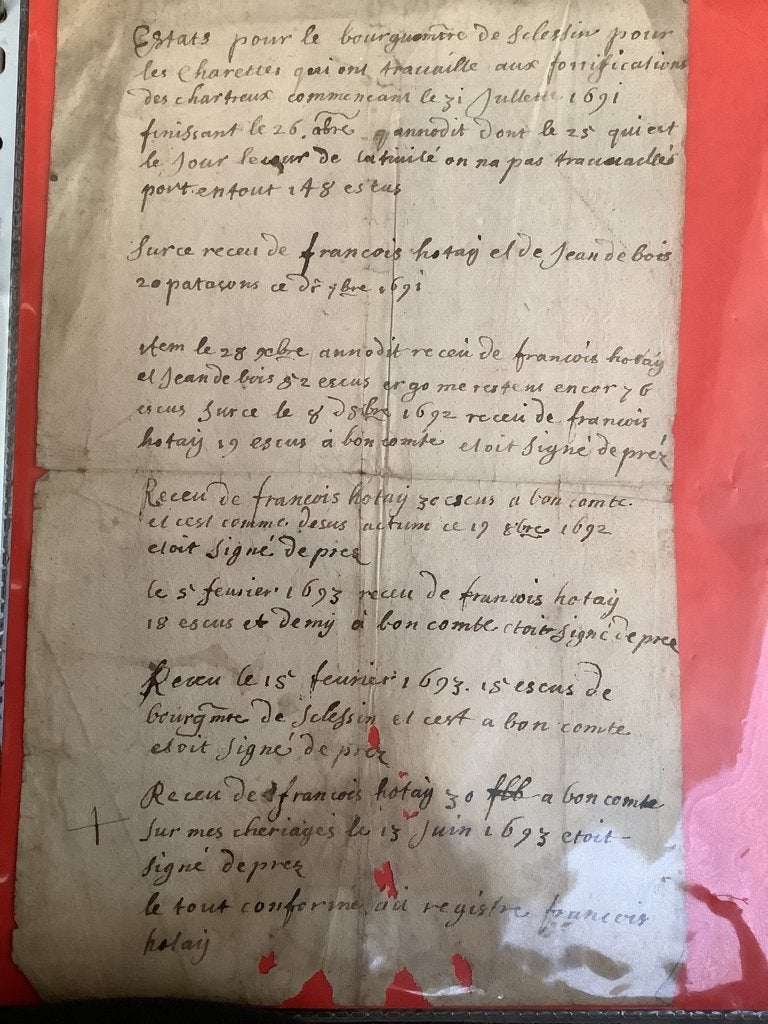 Estats pour le bourguemtre de Sclessin pour
les Charettes qui ont travaille aux fortifications
des chartreux commencant le 31 Jullette 1691
finissant le 26. dont le 25 qui est
le Jour de on na pas travaaillés
port entout 148 escus
Surce receu de francois hotaÿ et de Jean de bois
20 patacons ce 1691
item le 28 annodit receu de francois hotaÿ
et Jean de bois 52 escus ergo me restent encor 76
escus Surce le 8 d 8bre 1692 receu de francois
hotaÿ 19 escus a bon comte etoit Signé de préz
Receu de francois hotaÿ 30 escus a bon comte
et cest comme desus actum ce 19 8bre 1692
etoit Signé de prez
le 5 feurier 1693 receu de francois hotaÿ
18 escus et demÿ a bon comte etoit Signé de prez
Receu le 15 feurier 1693. 15 escus de
bourgmre de Sclessin et cest a bon comte
etoit Signé de prez
Receu de francois hotaÿ 30 a bon comte
Sur mes cheriages le 13 Juin 1693 etoit
Signé de prez
le tout conforme au registre francois
hotaÿ